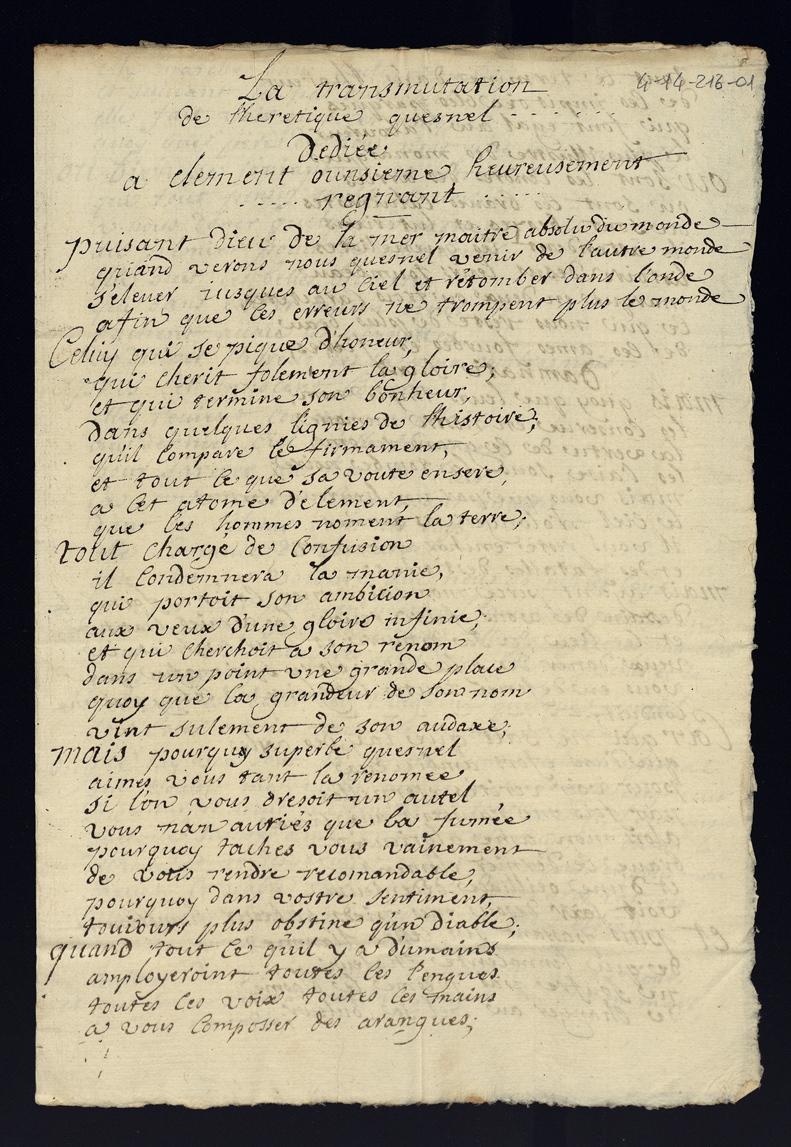 4-14-216-01
La transmutation
de lheretique quesnel
Dediée
a clement ounsieme heureusement
regnant
puisant Dieu de la mer maitre absolu du monde
quand verons nous quesnel venir de l'autre monde
s'elever iusques au ciel et rétomber dans l'onde
afin que ces erreurs ne trompent plus le monde
Celuy qui se pique d'honeur,
qui cherit folement la gloire;
et qui termine son bonheur,
dans quelques lignies de lhistoire;
qu'il compare le firmament,
et tout ce que sa voute ensere,
a cet atome d'element,
que les hommes noment la terre;
tout chargé de confusion
il condemnera la manie,
qui portoit son ambicion
aux veux d'une gloire infinie;
et qui cherchoit a son renom
dans un point vne grande place
quoy que la grandeur de son nom
vint sulement de son audaxe;
mais pourquoy superbe quesnel
aimes vous tant la renomée
si l'on vous dresoit un autel
vous n'an auriés que la fumée
pourquoy taches vous vainement
de vous rendre recomandable,
pourquoy dans vostre sentiment,
touiours plus obstine qu'un diable;
quand tout ce qu'il y a d'umains
amployeroint toutes les lengues
toutes les voix toutes les mains
a vous composser des arangues;